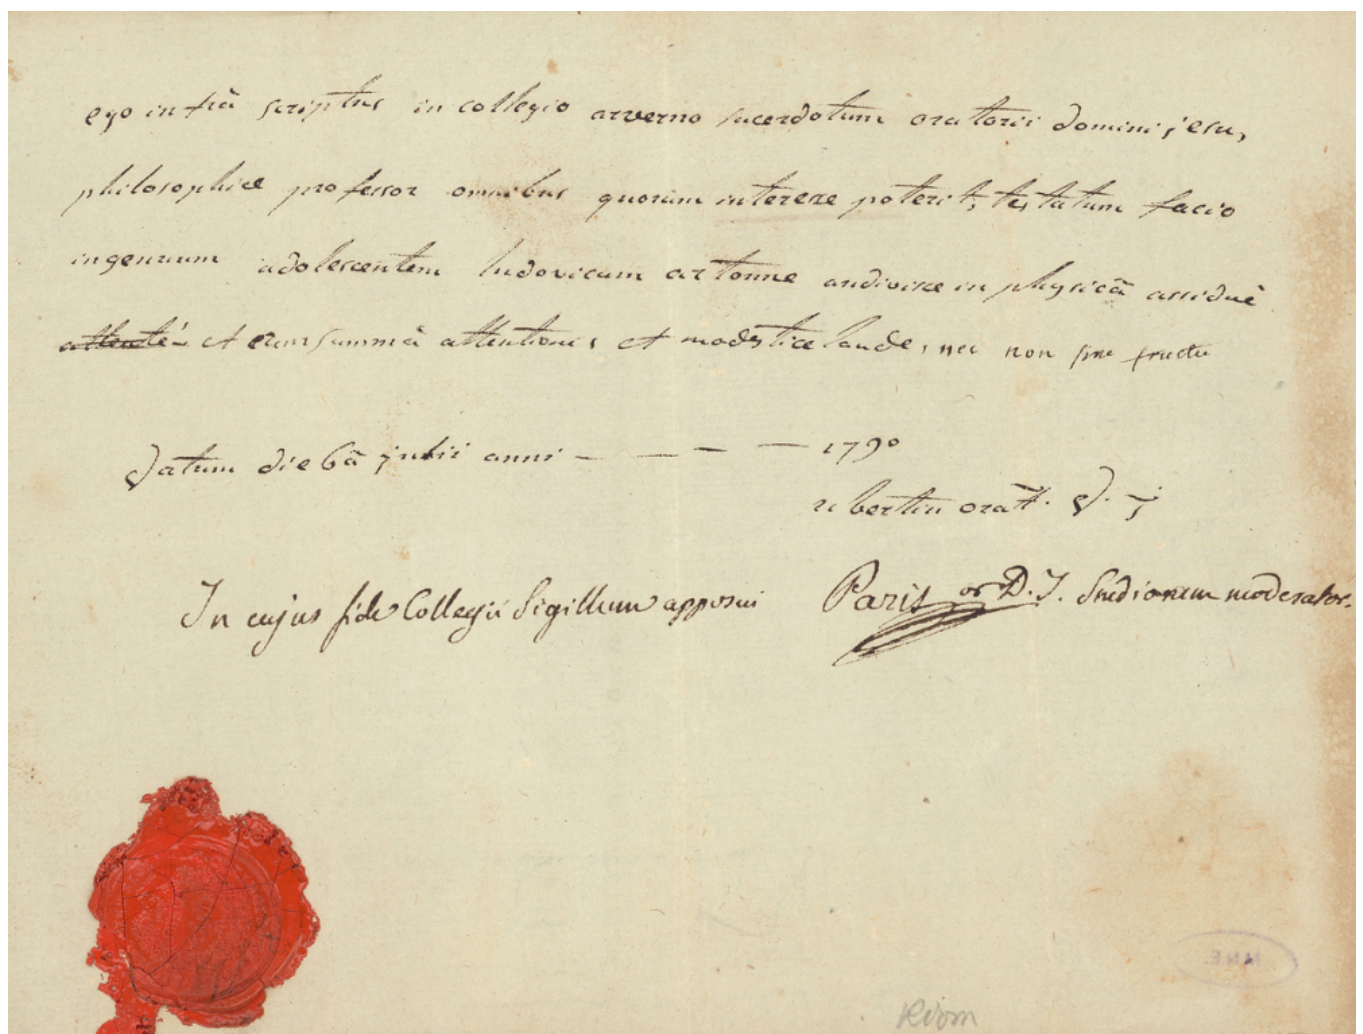 ego infrà scriptus in collegio arverno sacerdotum oratorii domini jesu,
philosophice professor omnibus quorum interere poterit, testatum facio
ingenuum adolescentem ludovicum artonne audivisse in physicâ assiduè
attentè et cum summâ attentionis et modestice laude, nec non sine fructu
Datum die 6â julii anni - — — — 1790
orat. D. j
In cujus fide Collegii Sigillum apposui Paris or D. J. Studiorum moderator.
Riom